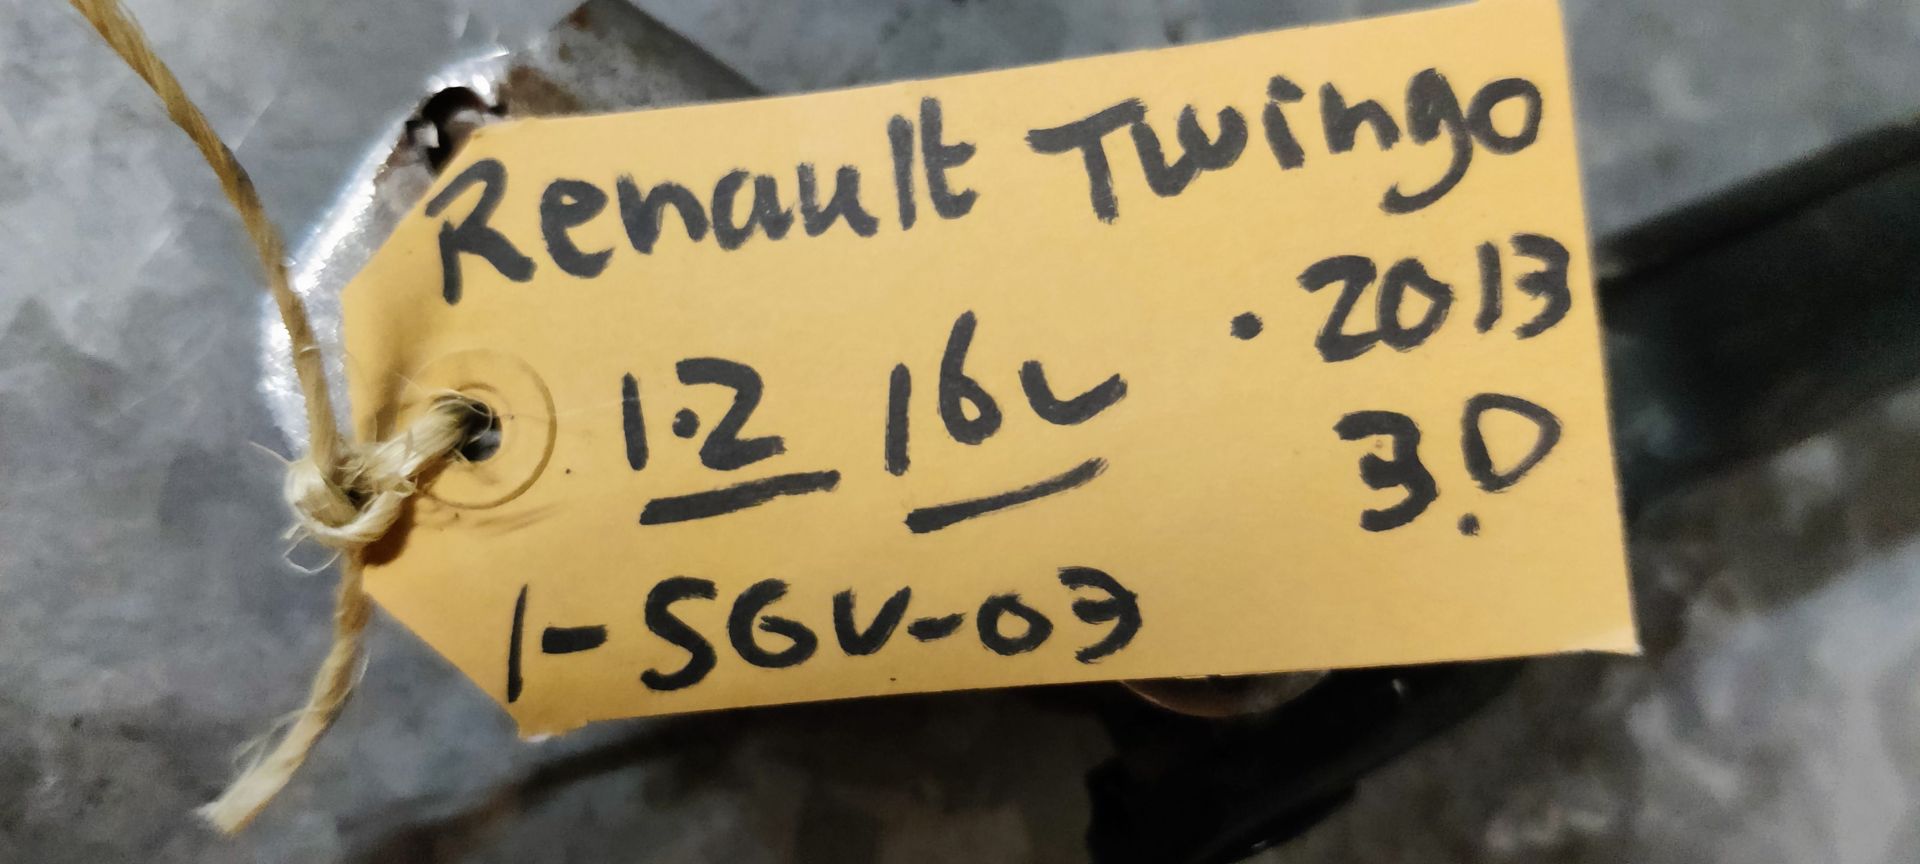 Renault Twingo
1.2 16v . 2013
3.D
1-SGV-03